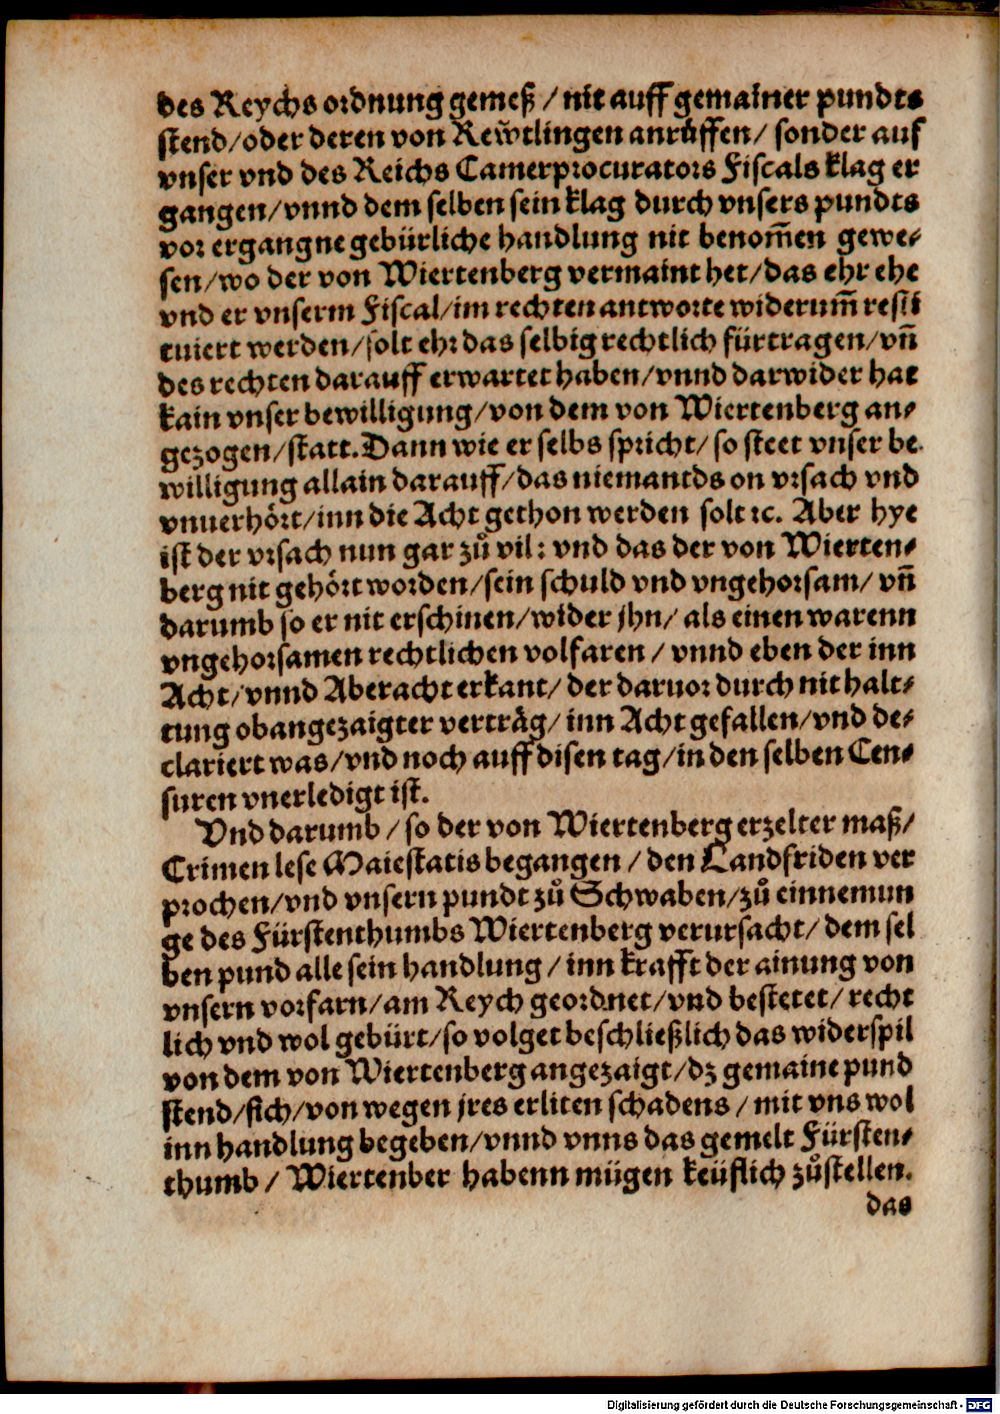 des Reychs ordnung gemeß / nit auff gemainer pundts
stend/oder deren von Rew̃tlingen anrůffen/ sonder auf
vnser vnd des Reichs Camerprocurators Fiscals klag er
gangen/vnnd dem selben sein klag durch vnsers pundts
vor ergangne gebürliche handlung nit benom̃en gewe-
sen/wo der von Wiertenberg vermaint het/das ehr ehe
vnd er vnserm Fiscal/im rechten antworte widerum̃ resti
tuiert werden/solt ehr das selbig rechtlich fürtragen/vñ
des rechten darauff erwartet haben/vnnd darwider hat
kain vnser bewilligung/von dem von Wiertenberg an-
gezogen/statt. Dann wie er selbs spricht/ so steet vnser be-
willigung allain darauff/das niemantds on vrsach vnd
vnuerhört/inn die Acht gethon werden solt ꝛc. Aber hye
ist der vrsach nun gar zů vil: vnd das der von Wierten-
berg nit gehört worden/sein schuld vnd vngehorsam/ vñ
darumb so er nit erschinen/wider jhn/ als einen warenn
vngehorsamen rechtlichen volfaren / vnnd eben der inn
Acht/vnnd Aberacht erkant/ der daruor durch nit halt-
tung obangezaigter verträg/ inn Acht gefallen/vnd de-
clariert was/vnd noch auff disen tag/in den selben Cen-
suren vnerledigt ist.
Vnd darumb / so der von Wiertenberg erzelter maß/
Crimen lese Maiestatis begangen / den Landfriden ver
prochen/vnd vnsern pundt zů Schwaben/zů einnemun
ge des Fürstenthumbs Wiertenberg verursacht/ dem sel
ben pund alle sein handlung / inn krafft der ainung von
vnsern vorfarn/am Reych geordnet/vnd bestetet/ recht
lich vnd wol gebürt/so volget beschließlich das widerspil
von dem von Wiertenberg angezaigt/dz gemaine pund
stend/sich/von wegen jres erliten schadens / mit vns wol
inn handlung begeben/vnnd vnns das gemelt Fürsten-
thumb / Wiertenber habenn mügen keüflich zůstellen.
das
Digitalisierung gefördert durch die Deutsche Forschungsgemeinschaft - DFG